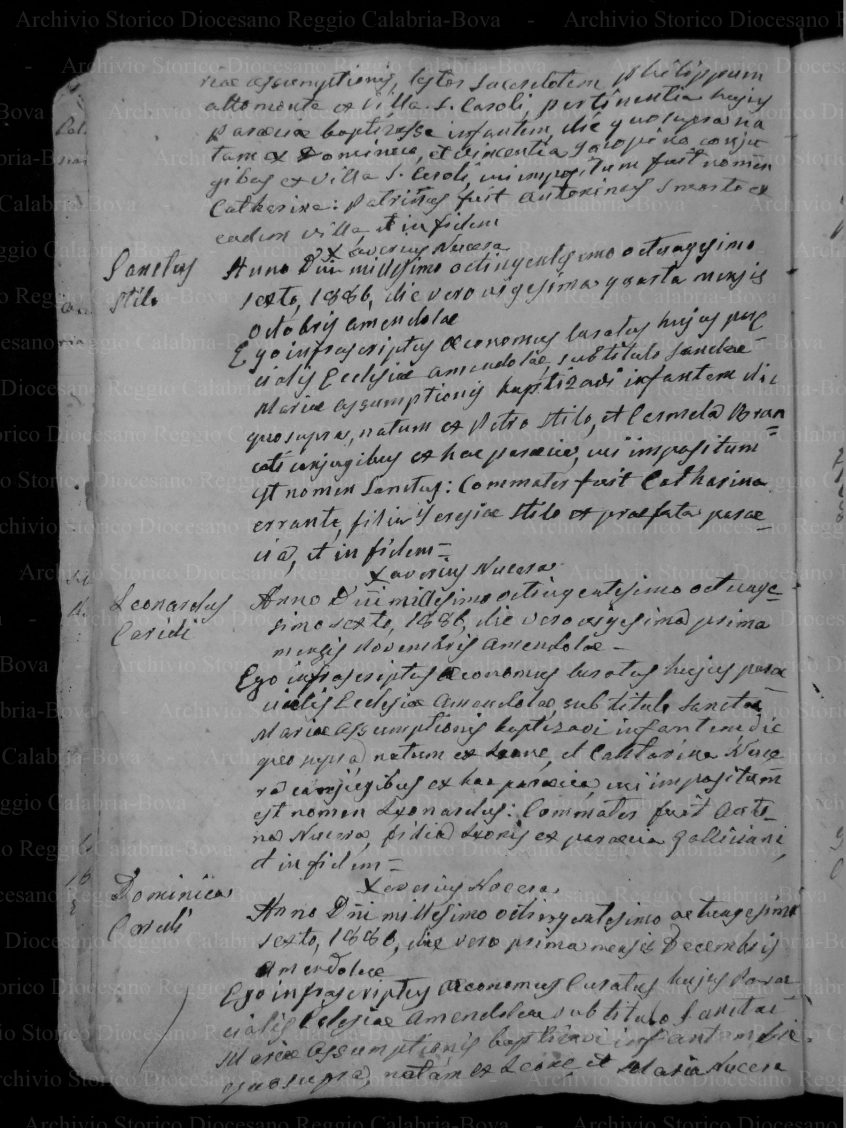 riae assumptionis, testor Sacerdotem Philippum
altomonte ex villa S. Caroli, pertinentia hujus
paraeciae baptizasse infantem, die quo supra na
tam ex Dominico, et Vincentia conju
gibus ex villa S. Caroli, cui impositum fuit nomen
Catharina: Patrinus fuit Antoninus ex
eadem villa et in fidem
Xaverius Nucera
Sanctus
Stilo
Anno Dñi millesimo octingentesimo octuagesimo
sexto, 1886, die vero vigesima quarta mensis
Octobris Amendolae
Ego infrascriptus Oeconomus Curatus hujus parae
cialis Eclesiae Amendolae sub titulo Sanctae
Mariae assumptionis baptizavi infantem die
quo supra, natum ex Petro Stilo, et Carmela Bran
cati conjugibus ex hac paraecia, cui impositum
est nomen Sanctus: Commater fuit Catharina
errante, filia Stilo ex praefata parae
cia, et in fidem =
Xaverius Nucera
Leonardus
Caridi
Anno Dñi millesimo octingentesimo octuage=
simo sexto, 1886, die vero vigesima prima
mensis Novembris Amendolae —
Ego infrascriptus Oeconomus Curatus hujus parae
cialis Eclesiae Amendolae, sub titulo Sanctae
Mariae assumptionis baptizavi infantem die
quo supra natum ex Leone, et Catharina Nuce
ra conjugibus ex hac paraecia, cui impositum
est nomen Leonardus: Commater fuit
na Nucera filia Leonis ex paraecia Galliciani,
et in fidem =
Xaverius Nucera
Dominica
Caridi
Anno Dñi millesimo octingentesimo octuagesimo
sexto, 1886, die vero prima mensis Decembris
Amendolae
Ego infrascriptus Oeconomus Curatus hujus Parae
cialis Eclesiae Amendolae sub titulo Sanctae
Mariae assumptionis baptizavi infantem die
quo supra, natam ex Leone, et Maria Nucera
Archivio Storico Diocesano Reggio Calabria-Bova